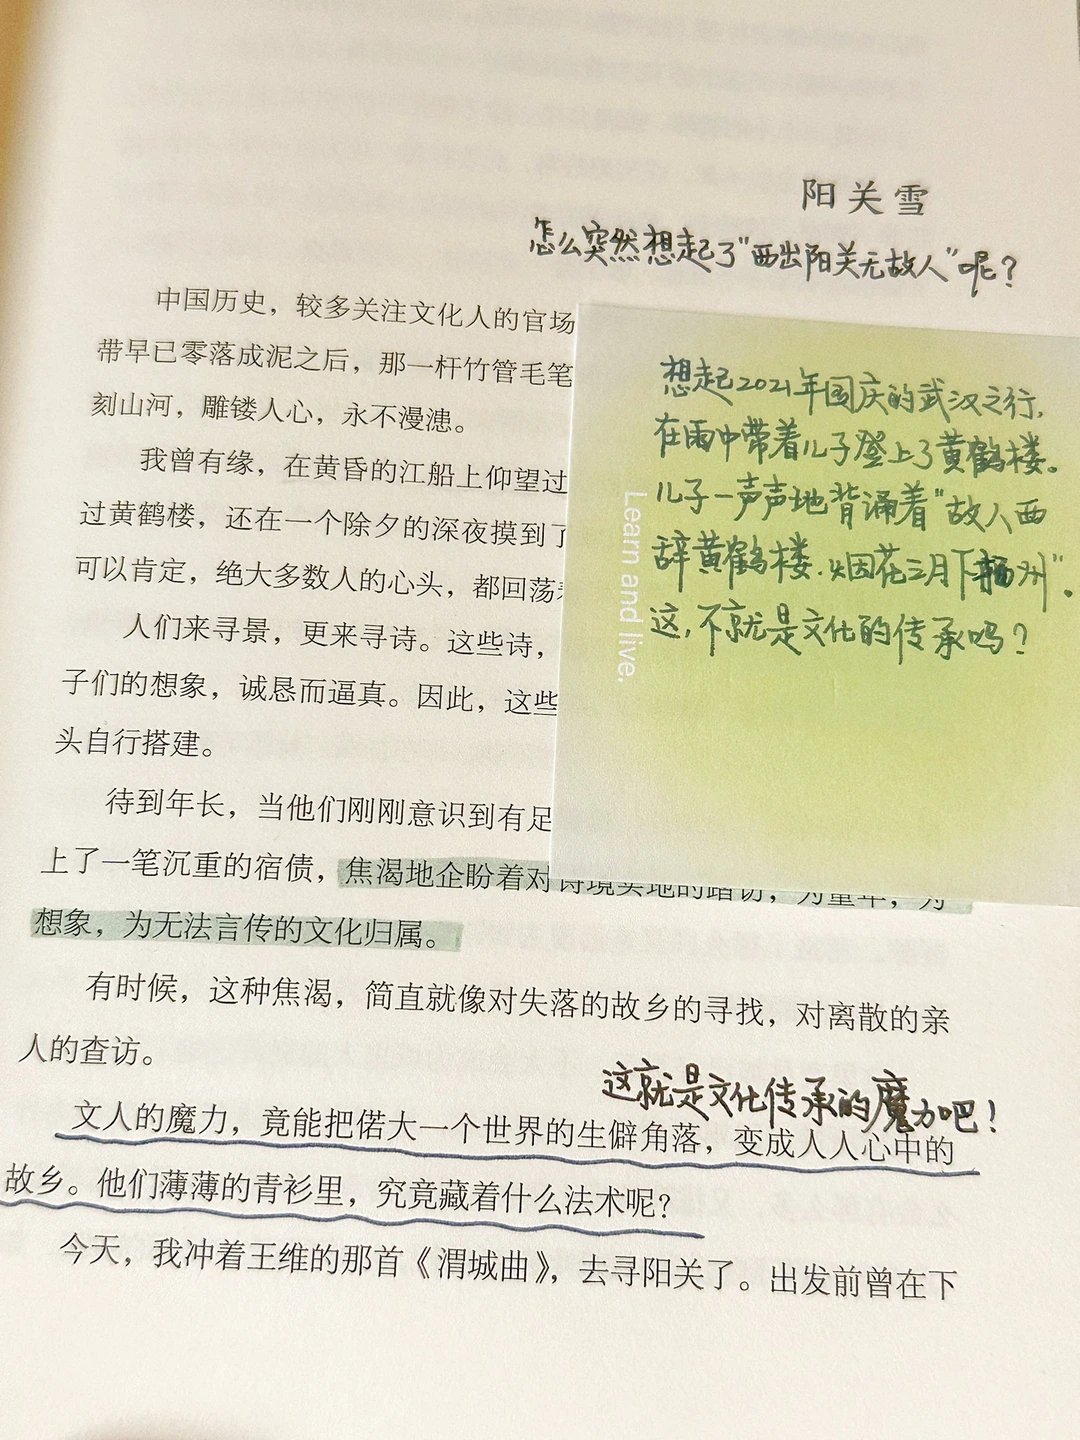 阳关雪
怎么突然想起了"西出阳关无故人"呢？
中国历史，较多关注文化人的官场
带早已零落成泥之后，那一杆竹管毛笔
刻山河，雕镂人心，永不漫漶。
我曾有缘，在黄昏的江船上仰望过
过黄鹤楼，还在一个除夕的深夜摸到了
可以肯定，绝大多数人的心头，都回荡
人们来寻景，更来寻诗。这些诗，
子们的想象，诚恳而逼真。因此，这些
头自行搭建。
待到年长，当他们刚刚意识到有足
上了一笔沉重的宿债，焦渴地企盼着对诗境实地的踏访，为童年，为
想象，为无法言传的文化归属。
有时候，这种焦渴，简直就像对失落的故乡的寻找，对离散的亲
人的查访。
这就是文化传承的魔力吧！
文人的魔力，竟能把偌大一个世界的生僻角落，变成人人心中的
故乡。他们薄薄的青衫里，究竟藏着什么法术呢？
今天，我冲着王维的那首《渭城曲》，去寻阳关了。出发前曾在下
想起2021年国庆的武汉之行，
在雨中带着儿子登上了黄鹤楼。
儿子一声声地背诵着"故人西
辞黄鹤楼，烟花三月下扬州"。
这，不就是文化的传承吗？
Learn and live.